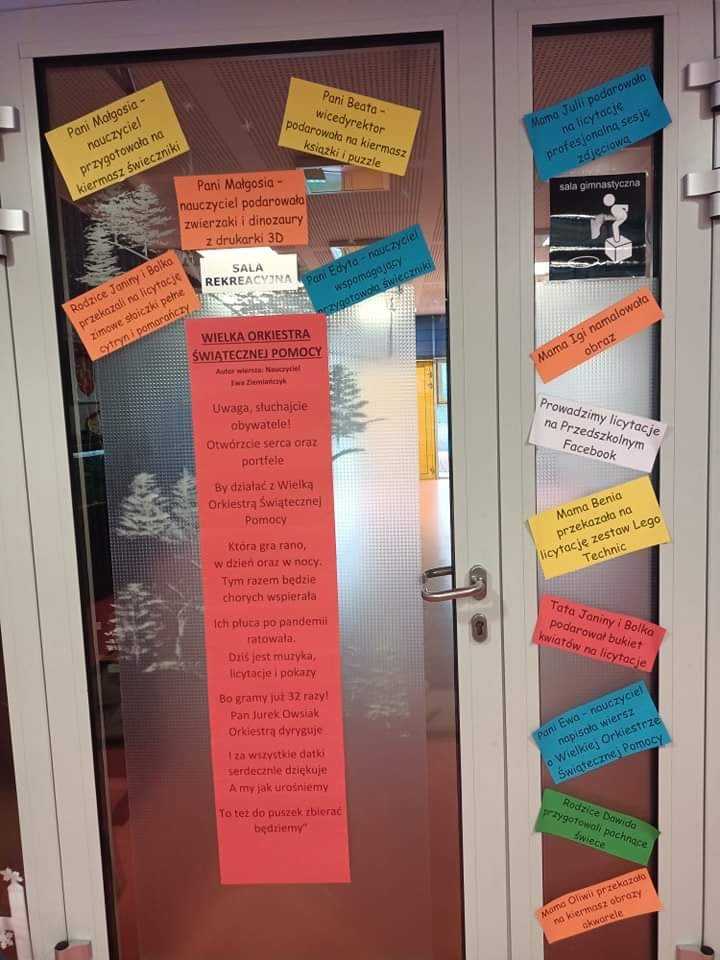 Pani Małgosia –
nauczyciel
przygotowała na
kiermasz świeczniki
Pani Beata –
wicedyrektor
podarowała na kiermasz
książki i puzzle
Pani Małgosia –
nauczyciel podarowała
zwierzaki i dinozaury
z drukarki 3D
Rodzice Janiny i Bolka
przekazali na licytację
zimowe słoiczki pełne
cytryn i pomarańczy
SALA
REKREACYJNA
Pani Edyta – nauczyciel
wspomagający
przygotowała świeczniki
WIELKA ORKIESTRA
ŚWIĄTECZNEJ POMOCY
Autor wiersza: Nauczyciel
Ewa Ziemiańczyk
Uwaga, słuchajcie
obywatele!
Otwórzcie serca oraz
portfele
By działać z Wielką
Orkiestrą Świątecznej
Pomocy
Która gra rano,
w dzień oraz w nocy.
Tym razem będzie
chorych wspierała
Ich płuca po pandemii
ratowała.
Dziś jest muzyka,
licytacje i pokazy
Bo gramy już 32 razy!
Pan Jurek Owsiak
Orkiestrą dyryguje
I za wszystkie datki
serdecznie dziękuje
A my jak urośniemy
To też do puszek zbierać
będziemy"
Mama Julii podarowała
na licytację
profesjonalną sesję
zdjęciową
sala gimnastyczna
Mama Igi namalowała
obraz
Prowadzimy licytacje
na Przedszkolnym
Facebook
Mama Benia
przekazała na
licytację zestaw Lego
Technic
Tata Janiny i Bolka
podarował bukiet
kwiatów na licytację
Pani Ewa – nauczyciel
napisała wiersz
o Wielkiej Orkiestrze
Świątecznej Pomocy
Rodzice Dawida
przygotowali pachnące
świece
Mama Oliwii przekazała
na kiermasz obrazy
akwarele